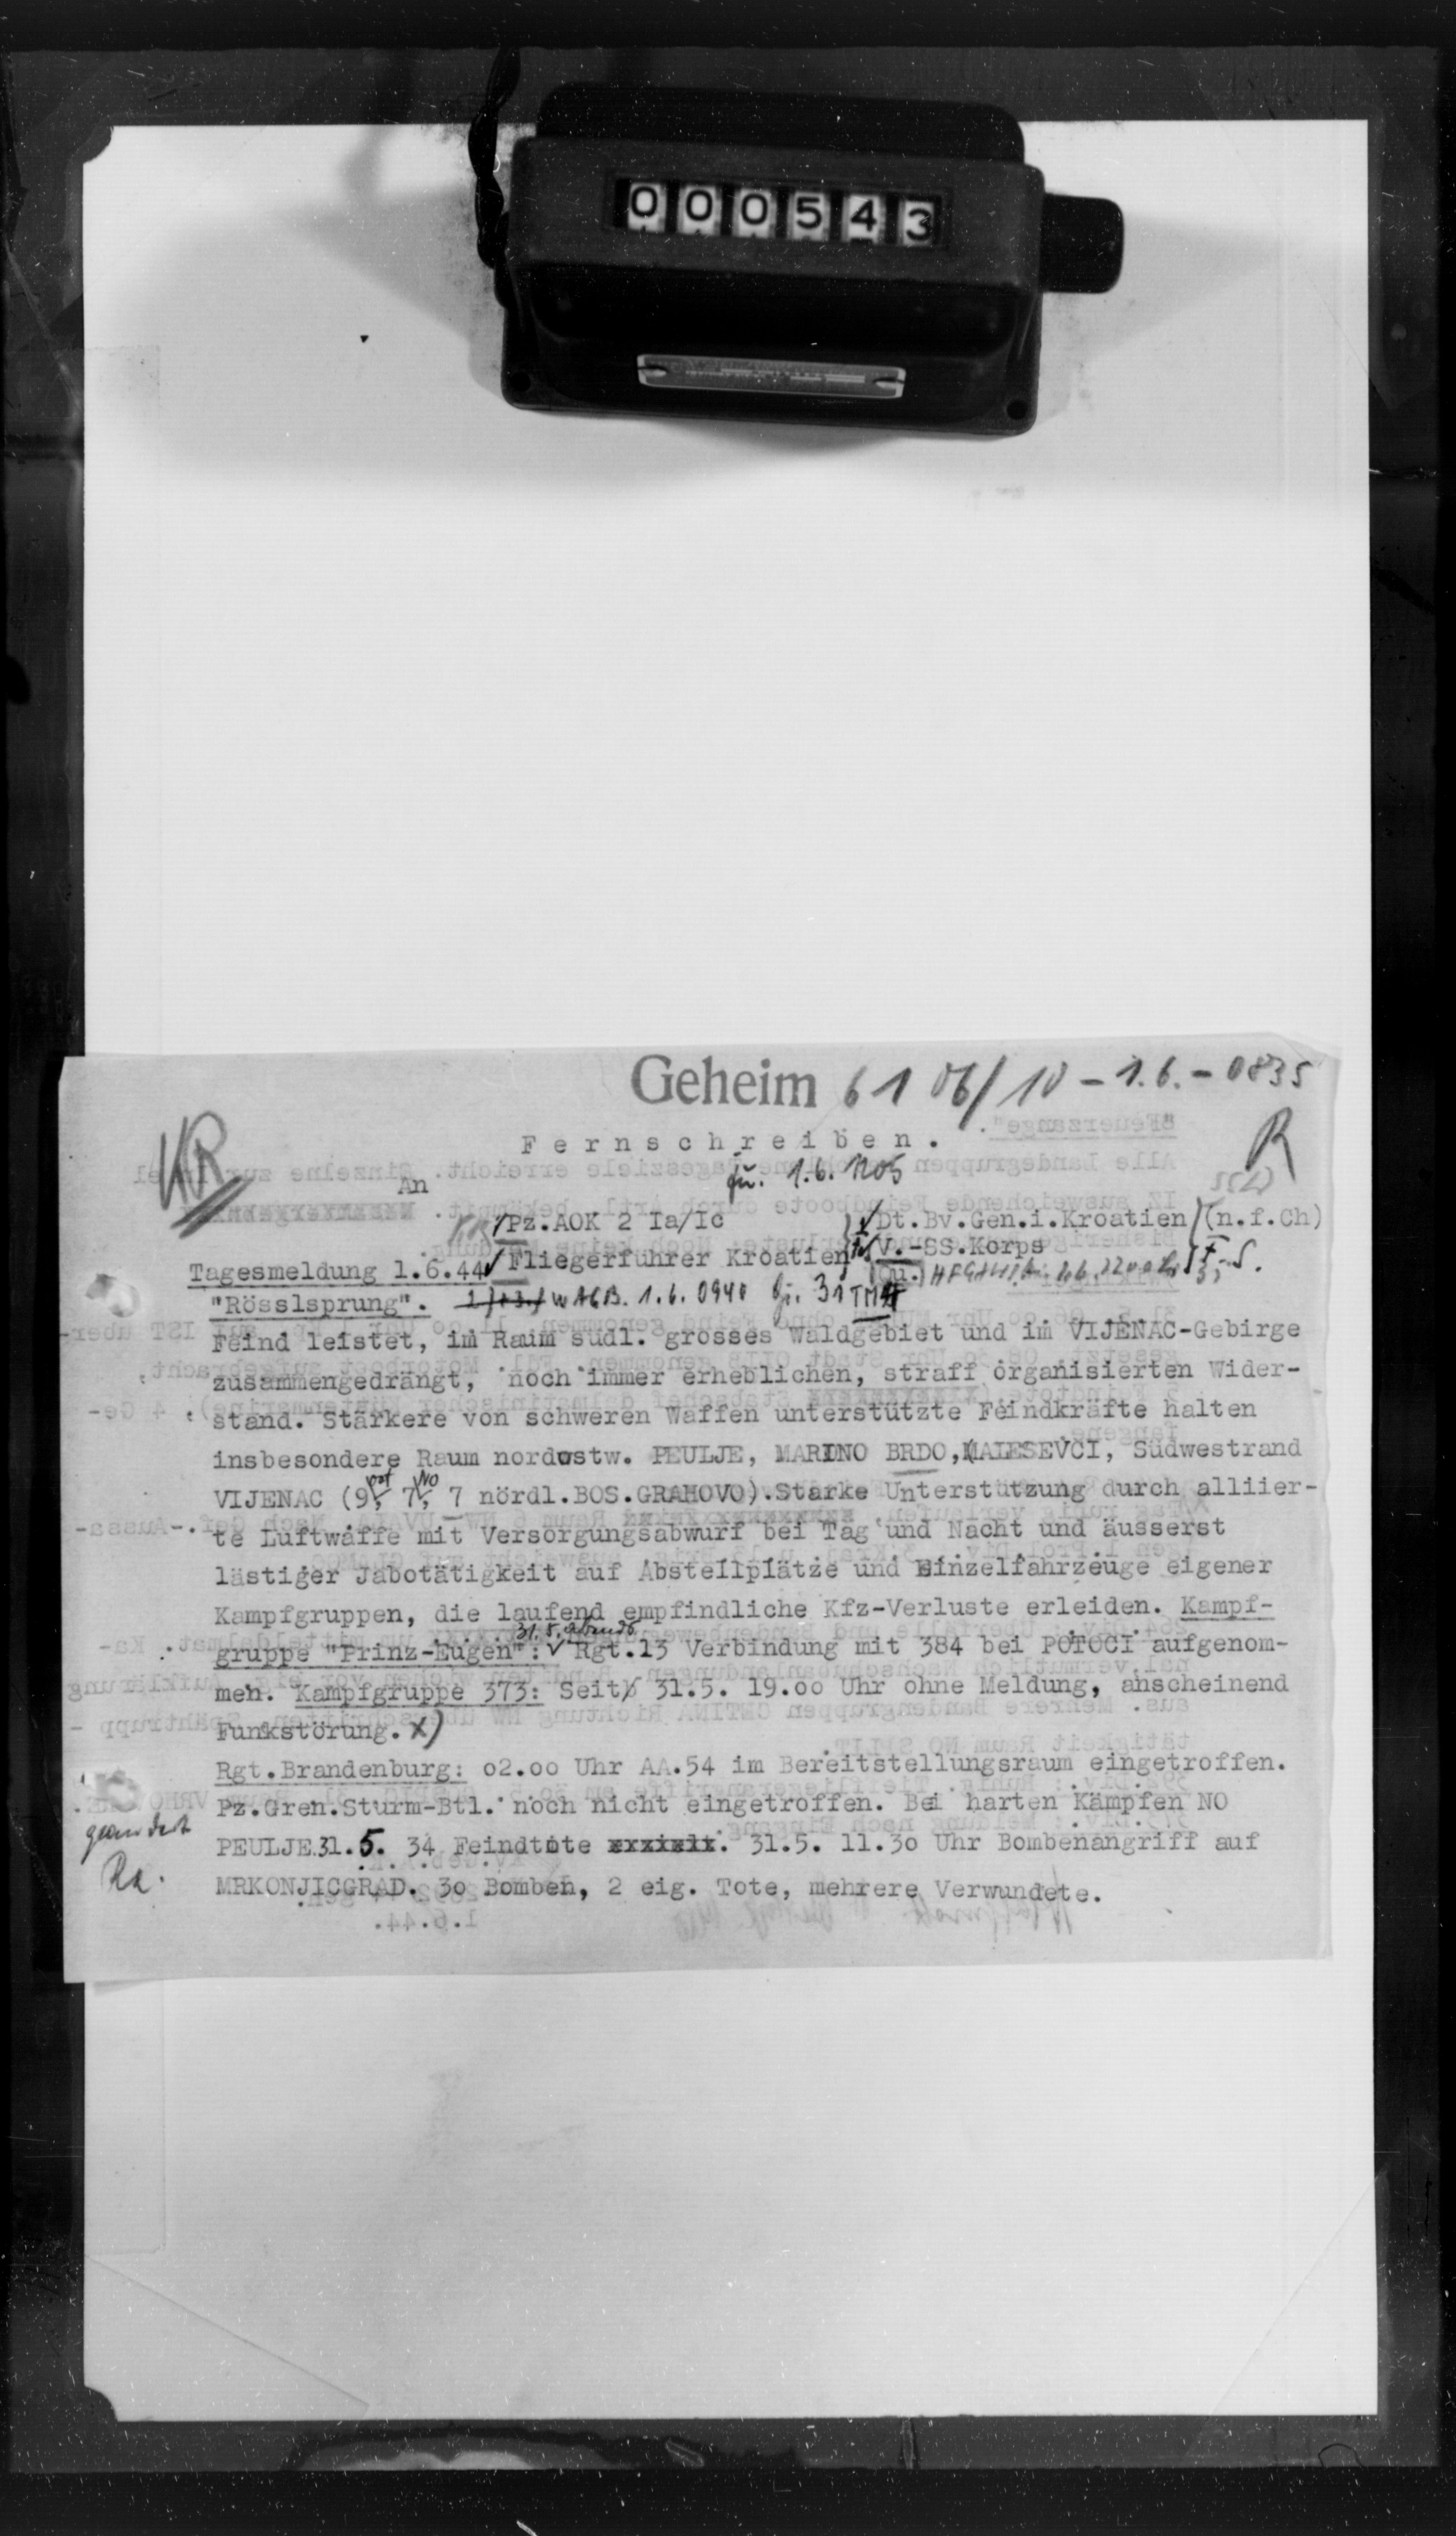 000543
Geheim 61 06/10 - 1.6. - 0835
Fernschreiben.
1.6. 1105
KR
R
An
Pz.AOK 2 Ia/Ic
Dt.Bv.Gen.i.Kroatien (n.f.Ch)
Fliegerführer Kroatien
V.-SS.Korps
Tagesmeldung 1.6.44
(Qu.)
"Rösslsprung". 1.6. 0940
Feind leistet, im Raum südl. grosses Waldgebiet und im VIJENAC-Gebirge
zusammengedrängt, noch immer erheblichen, straff organisierten Wider-
stand. Stärkere von schweren Waffen unterstützte Feindkräfte halten
insbesondere Raum nordostw. PEULJE, MARINO BRDO, MALESEVCI, Südwestrand
VIJENAC (9, 7 NO, 7 nördl.BOS.GRAHOVO).Starke Unterstützung durch alliier-
te Luftwaffe mit Versorgungsabwurf bei Tag und Nacht und äusserst
lästiger Jabotätigkeit auf Abstellplätze und Einzelfahrzeuge eigener
Kampfgruppen, die laufend empfindliche Kfz-Verluste erleiden. Kampf-
31.5. abends
gruppe "Prinz-Eugen": Rgt.13 Verbindung mit 384 bei POTOCI aufgenom-
men. Kampfgruppe 373: Seit 31.5. 19.oo Uhr ohne Meldung, anscheinend
Funkstörung. x)
Rgt.Brandenburg: o2.oo Uhr AA.54 im Bereitstellungsraum eingetroffen.
Pz.Gren.Sturm-Btl. noch nicht eingetroffen. Bei harten Kämpfen NO
geändert
PEULJE 31.5. 34 Feindtote. 31.5. 11.3o Uhr Bombenangriff auf
MRKONJICGRAD. 3o Bomben, 2 eig. Tote, mehrere Verwundete.